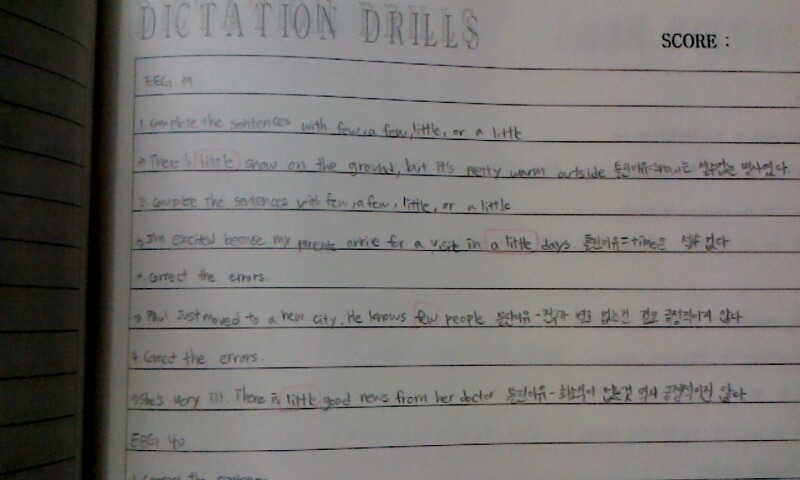 DICTATION DRILLS
SCORE :
EEG 39
1. Complete the sentences with few, a few, little, or a little
→ There's little snow on the ground, but it's pretty warm outside 틀린이유=snow는 셀수없는 명사였다.
2. Complete the sentences with few, a few, little, or a little
→ I'm excited because my parents arrive for a visit in a little days. 틀린이유=time은 셀수 없다
Correct the errors.
→ Paul Just moved to a new city. He knows few people 틀린이유-친구가 별로 없는건 결코 긍정적이지 않다
4. Correct the errors.
→ She's very ill. There is little good news from her doctor 틀린이유- 없는것 역시 긍정적이진 않다
EEG 40